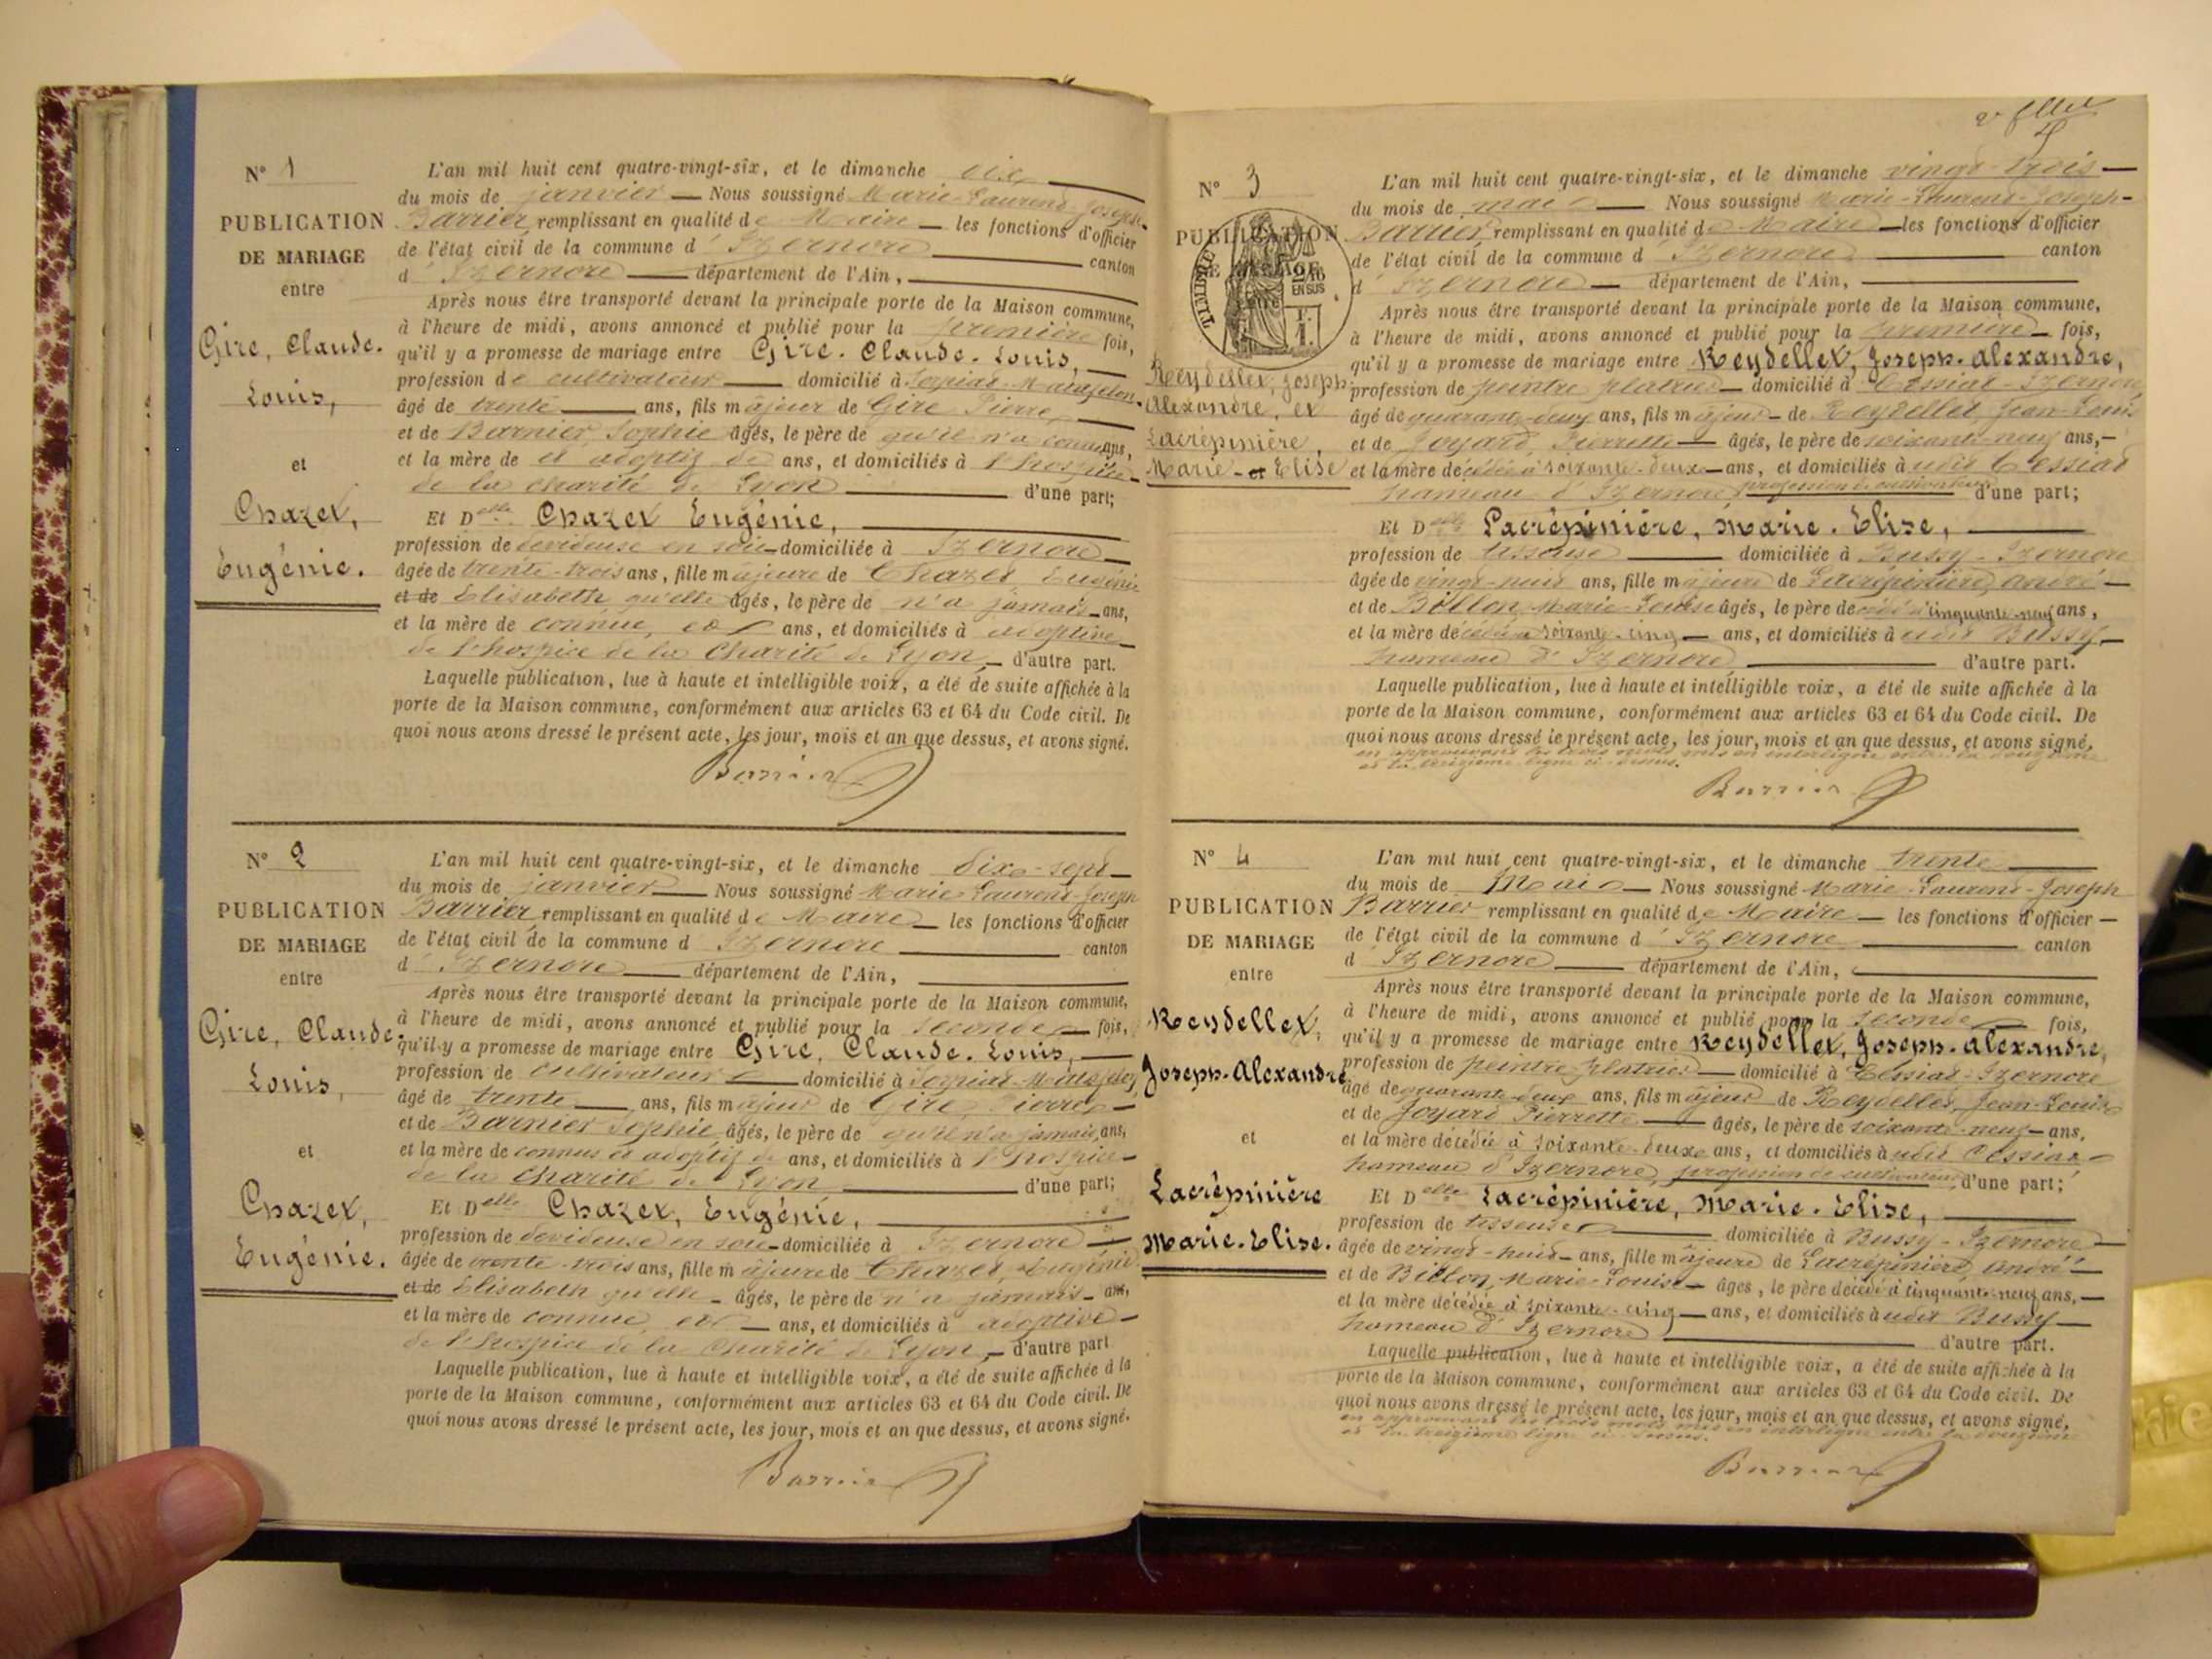 N° 1
PUBLICATION
DE MARIAGE
entre
Gire, Claude.
Louis,
et
Chazet,
Eugénie.
L'an mil huit cent quatre-vingt-six, et le dimanche dix
du mois de janvier Nous soussigné Marie-Laurent-Joseph-
Barrier, remplissant en qualité de Maire les fonctions d'officier
de l'état civil de la commune d'Izernore canton
d'Izernore département de l'Ain,
Après nous être transporté devant la principale porte de la Maison commune,
à l'heure de midi, avons annoncé et publié pour la première fois,
qu'il y a promesse de mariage entre Gire. Claude. Louis,
profession de cultivateur domicilié à
âgé de trente ans, fils majeur de Gire Pierre,
et de Barnier Sophie âgés, le père de qu'il n'a ans,
et la mère de et adoptif de ans, et domiciliés à l'hospice
de la charité de Lyon d'une part;
Et Delle Chazet Eugénie,
profession de dévideuse en soie domiciliée à Izernore
âgée de trente-trois ans, fille majeure de Chazet Eugénie
et de Elisabeth qu'elle âgés, le père de n'a jamais ans,
et la mère de connue, ans, et domiciliés à adoptive
de l'hospice de la Charité de Lyon, d'autre part.
Laquelle publication, lue à haute et intelligible voix, a été de suite affichée à la
porte de la Maison commune, conformément aux articles 63 et 64 du Code civil. De
quoi nous avons dressé le présent acte, les jour, mois et an que dessus, et avons signé.
Barrier
N° 2
PUBLICATION
DE MARIAGE
entre
Gire, Claude.
Louis,
et
Chazet,
Eugénie.
L'an mil huit cent quatre-vingt-six, et le dimanche dix-sept
du mois de janvier Nous soussigné Marie-Laurent-Joseph
Barrier, remplissant en qualité de Maire les fonctions d'officier
de l'état civil de la commune d'Izernore canton
d'Izernore département de l'Ain,
Après nous être transporté devant la principale porte de la Maison commune,
à l'heure de midi, avons annoncé et publié pour la seconde fois,
qu'il y a promesse de mariage entre Gire, Claude. Louis,
profession de cultivateur domicilié à
âgé de trente ans, fils majeur de Gire Pierre
et de Barnier Sophie âgés, le père de qu'il n'a jamais ans,
et la mère de connus et adoptif de ans, et domiciliés à l'hospice
de la charité de Lyon d'une part;
Et Delle Chazet, Eugénie,
profession de dévideuse en soie domiciliée à Izernore
âgée de trente-trois ans, fille majeure de Chazet, Eugénie
et de Elisabeth qu'elle âgés, le père de n'a jamais ans,
et la mère de connue, ans, et domiciliés à adoptive
de l'hospice de la Charité de Lyon, d'autre part
Laquelle publication, lue à haute et intelligible voix, a été de suite affichée à la
porte de la Maison commune, conformément aux articles 63 et 64 du Code civil. De
quoi nous avons dressé le présent acte, les jour, mois et an que dessus, et avons signé.
Barrier
N° 3
PUBLICATION
TIMBRE
EN SUS
Reydellet, Joseph
Alexandre, et
Lacrépinière,
Marie-Elise
L'an mil huit cent quatre-vingt-six, et le dimanche vingt-trois
du mois de mai Nous soussigné Marie-Laurent-Joseph-
Barrier remplissant en qualité de Maire les fonctions d'officier
de l'état civil de la commune d'Izernore canton
d'Izernore département de l'Ain,
Après nous être transporté devant la principale porte de la Maison commune,
à l'heure de midi, avons annoncé et publié pour la première fois,
qu'il y a promesse de mariage entre Reydellet, Joseph-Alexandre,
profession de peintre plâtrier domicilié à Cessiat-Izernore
âgé de quarante-deux ans, fils majeur de Reydellet Jean-Louis
et de Joyard, Pierrette âgés, le père de soixante-neuf ans,
et la mère décédée à soixante-deux ans, et domiciliés à udit Cessiat
hameau d'Izernore profession de cultivateur d'une part;
Et Delle Lacrépinière, Marie. Elise,
profession de tisseuse domiciliée à Bussy-Izernore
âgée de vingt-huit ans, fille majeure de Lacrépinière, André
et de Billon, Marie-Louise âgés, le père décédé à cinquante-neuf ans,
et la mère décédée à soixante-cinq ans, et domiciliés à udit Bussy
hameau d'Izernore d'autre part.
Laquelle publication, lue à haute et intelligible voix, a été de suite affichée à la
porte de la Maison commune, conformément aux articles 63 et 64 du Code civil. De
quoi nous avons dressé le présent acte, les jour, mois et an que dessus, et avons signé,
en approuvant les trois mots mis en interligne entre la douzième
et la treizième ligne ci-dessus.
Barrier
N° 4
PUBLICATION
DE MARIAGE
entre
Reydellet,
Joseph-Alexandre
et
Lacrépinière
Marie-Elise.
L'an mil huit cent quatre-vingt-six, et le dimanche trente
du mois de Mai Nous soussigné Marie-Laurent-Joseph
Barrier remplissant en qualité de Maire les fonctions d'officier
de l'état civil de la commune d'Izernore canton
d'Izernore département de l'Ain,
Après nous être transporté devant la principale porte de la Maison commune,
à l'heure de midi, avons annoncé et publié pour la seconde fois,
qu'il y a promesse de mariage entre Reydellet, Joseph-Alexandre,
profession de peintre plâtrier domicilié à Cessiat-Izernore
âgé de quarante-deux ans, fils majeur de Reydellet, Jean-Louis
et de Joyard Pierrette âgés, le père de soixante-neuf ans,
et la mère décédée à soixante-deux ans, et domiciliés à udit Cessiat
hameau d'Izernore, profession de cultivateur d'une part;
Et Delle Lacrépinière, Marie. Elise,
profession de tisseuse domiciliée à Bussy-Izernore
âgée de vingt-huit ans, fille majeure de Lacrépinière, André
et de Billon, Marie-Louise âgés, le père décédé à cinquante-neuf ans,
et la mère décédée à soixante-cinq ans, et domiciliés à udit Bussy
hameau d'Izernore d'autre part.
Laquelle publication, lue à haute et intelligible voix, a été de suite affichée à la
porte de la Maison commune, conformément aux articles 63 et 64 du Code civil. De
quoi nous avons dressé le présent acte, les jour, mois et an que dessus, et avons signé,
en approuvant les trois mots mis en interligne entre la douzième
et la treizième ligne ci-dessus.
Barrier